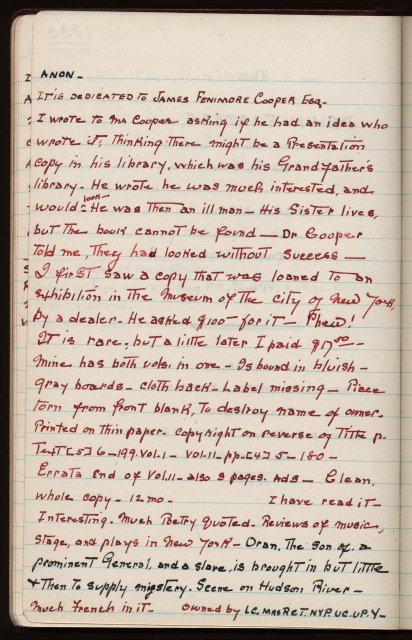 ANON-
It is dedicated to James Fenimore Cooper Esq-
I wrote to Mr Cooper asking if he had an idea who
wrote it; thinking there might be a Presentation
copy in his library, which was his Grandfather's
library- He wrote he was much interested, and
would look- He was then an ill man- His Sister lives,
but the book cannot be found- Dr Cooper
told me, they had looked without success-
I first saw a copy that was loaned to an
exhibition in the Museum of the City of New York,
by a dealer- He asked $100- for it- Phew!
It is rare; but a little later I paid $17.50-
Mine has both vols. in one- Is bound in bluish-
gray boards- cloth back- Label missing- Piece
torn from front blank, to destroy name of owner-
Printed on thin paper- copyright on reverse of Title p.
Text [5] 6-199. Vol. I- Vol. II- pp.[4] 5-180-
Errata end of Vol. II- also 3 pages. Ads- Clean,
whole copy- 12mo- I have read it-
Interesting. Much Poetry quoted- Reviews of music,
stage, and plays in New York- Oran, The son of a
prominent General, and a slave, is brought in but little
& then to supply mystery. Scene on Hudson River-
Much French in it- Owned by LC. Mas RCT. NYP. UC. UP. Y-